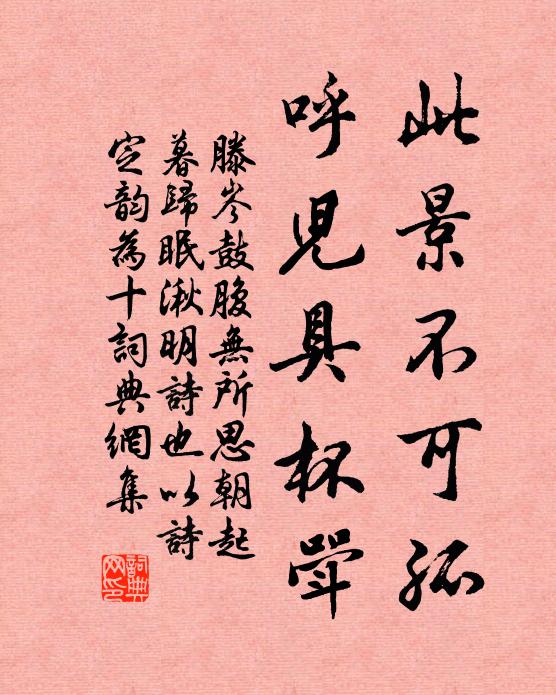 此景不可孤
呼児具杯斝
滕岑鼓腹無所思朝起
暮歸眠湫明詩也以詩
定韵為十詞典網集
詞典网印